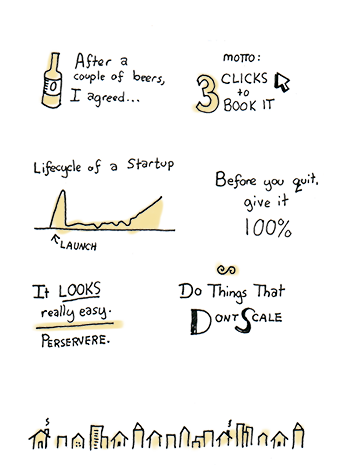 After a
couple of beers,
I agreed...
MOTTO:
3 CLICKS
to
BOOK IT
Lifecycle of a Startup
LAUNCH
Before you quit,
give it
100%
It LOOKS
really easy.
PERSERVERE.
Do Things That
DONT SCALE